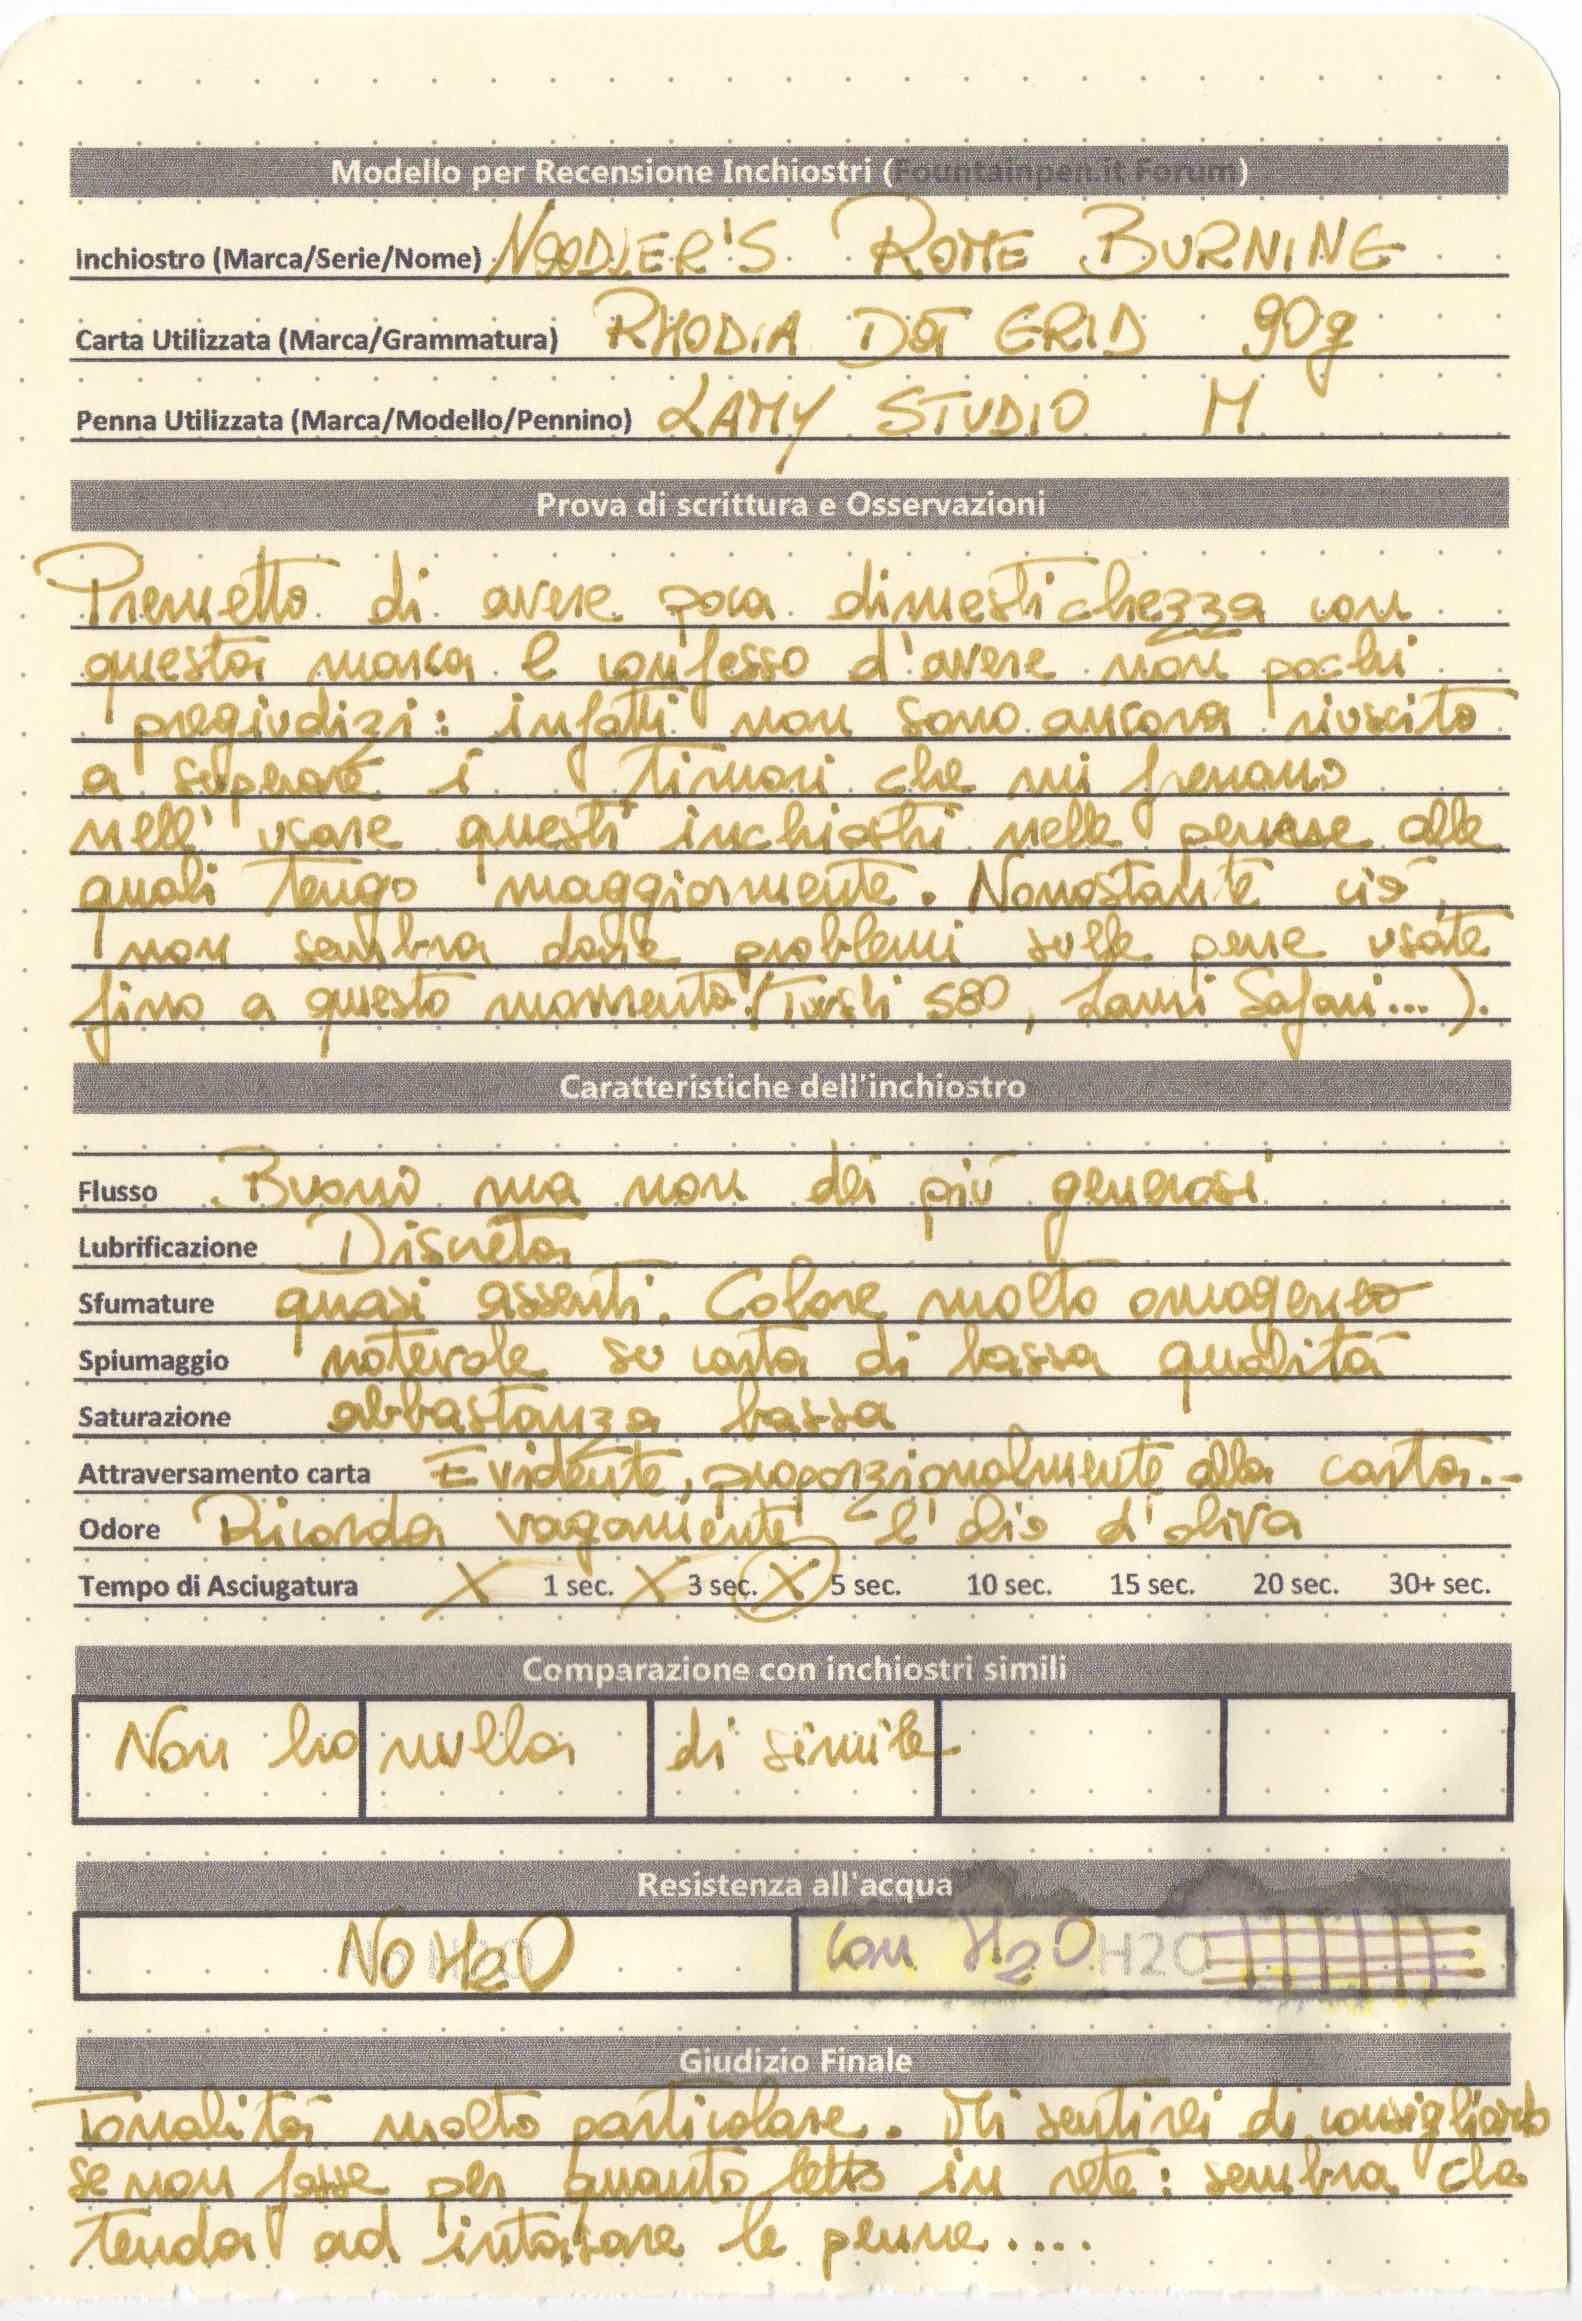 Modello per Recensione Inchiostri (Fountainpen.it Forum)
Inchiostro (Marca/Serie/Nome) NOODLER'S ROME BURNING
Carta Utilizzata (Marca/Grammatura) RHODIA DOT GRID 90g
Penna Utilizzata (Marca/Modello/Pennino) LAMY STUDIO M
Prova di scrittura e Osservazioni
Premetto di avere poca dimestichezza con
questa marca e confesso d'avere non pochi
pregiudizi: infatti non sono ancora riuscito
a superare i timori che mi frenano
nell'usare questi inchiostri nelle penne alle
quali tengo maggiormente. Nonostante ciò,
non sembra dare problemi sulle penne usate
fino a questo momento (Twsbi 580, Lami Safari...).
Caratteristiche dell'inchiostro
Flusso Buono ma non dei più generosi
Lubrificazione Discreta
Sfumature quasi assenti. Colore molto omogeneo
Spiumaggio notevole su carta di bassa qualità
Saturazione abbastanza bassa
Attraversamento carta Evidente, proporzionalmente alla carta...
Odore Ricorda vagamente l'olio d'oliva
Tempo di Asciugatura X 1 sec. X 3 sec. X 5 sec. 10 sec. 15 sec. 20 sec. 30+ sec.
Comparazione con inchiostri simili
Non ho nulla di simile
Resistenza all'acqua
No H2O con H2O H2O
Giudizio Finale
Tonalità molto particolare. Mi sentirei di consigliarlo
se non fosse per quanto letto in rete: sembra che
tenda ad intasare le penne....